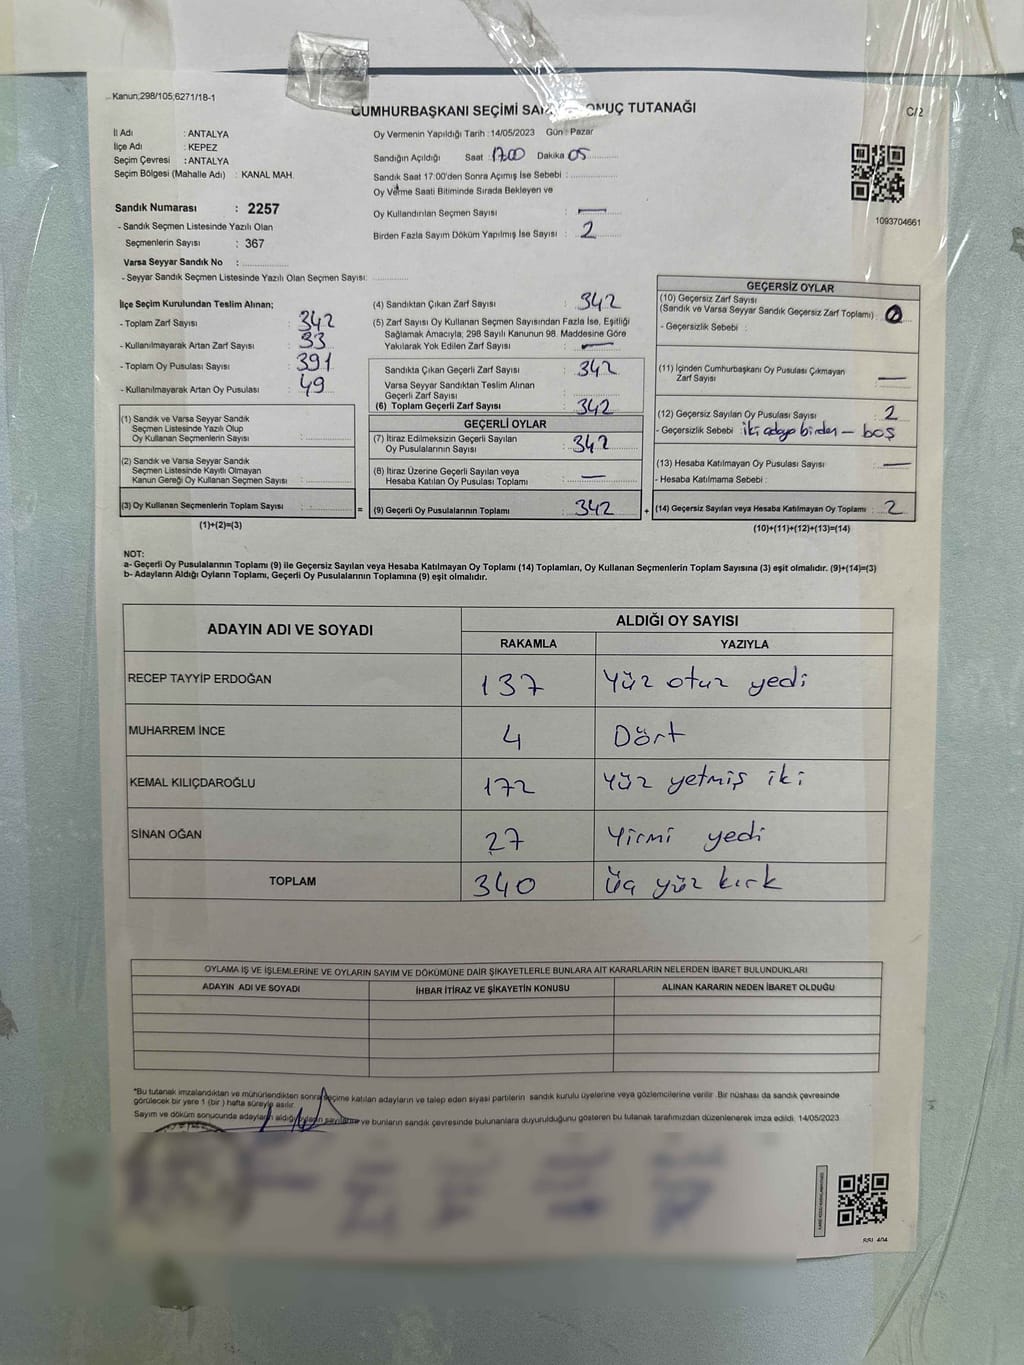 Kanun;298/105,6271/18-1
CUMHURBAŞKANI SEÇİMİ TUTANAĞI
C/2
İl Adı : ANTALYA
İlçe Adı : KEPEZ
Seçim Çevresi : ANTALYA
Seçim Bölgesi (Mahalle Adı) : KANAL MAH.
Oy Vermenin Yapıldığı Tarih : 14/05/2023 Gün : Pazar
Sandığın Açıldığı Saat : 17.00 Dakika 05
Sandık Saat 17:00'den Sonra Açımış İse Sebebi :
Oy Verme Saati Bitiminde Sırada Bekleyen ve
Oy Kullandırılan Seçmen Sayısı : —
Birden Fazla Sayım Döküm Yapılmış İse Sayısı : 2
1093704661
Sandık Numarası : 2257
- Sandık Seçmen Listesinde Yazılı Olan
Seçmenlerin Sayısı : 367
Varsa Seyyar Sandık No :
- Seyyar Sandık Seçmen Listesinde Yazılı Olan Seçmen Sayısı:
İlçe Seçim Kurulundan Teslim Alınan;
- Toplam Zarf Sayısı : 342
- Kullanılmayarak Artan Zarf Sayısı : 33
- Toplam Oy Pusulası Sayısı : 391
- Kullanılmayarak Artan Oy Pusulası : 49
(1) Sandık ve Varsa Seyyar Sandık
Seçmen Listesinde Yazılı Olup
Oy Kullanan Seçmenlerin Sayısı :
(2) Sandık ve Varsa Seyyar Sandık
Seçmen Listesinde Kayıtlı Olmayan
Kanun Gereği Oy Kullanan Seçmen Sayısı :
(3) Oy Kullanan Seçmenlerin Toplam Sayısı : =
(1)+(2)=(3)
(4) Sandıktan Çıkan Zarf Sayısı : 342
(5) Zarf Sayısı Oy Kullanan Seçmen Sayısından Fazla İse, Eşitliği
Sağlamak Amacıyla; 298 Sayılı Kanunun 98. Maddesine Göre
Yakılarak Yok Edilen Zarf Sayısı : —
Sandıkta Çıkan Geçerli Zarf Sayısı : 342
Varsa Seyyar Sandıktan Teslim Alınan
Geçerli Zarf Sayısı :
(6) Toplam Geçerli Zarf Sayısı : 342
GEÇERLİ OYLAR
(7) İtiraz Edilmeksizin Geçerli Sayılan
Oy Pusulalarının Sayısı : 342
(8) İtiraz Üzerine Geçerli Sayılan veya
Hesaba Katılan Oy Pusulası Toplamı : —
(9) Geçerli Oy Pusulalarının Toplamı : 342 +
GEÇERSİZ OYLAR
(10) Geçersiz Zarf Sayısı
(Sandık ve Varsa Seyyar Sandık Geçersiz Zarf Toplamı) : 0
- Geçersizlik Sebebi :
(11) İçinden Cumhurbaşkanı Oy Pusulası Çıkmayan
Zarf Sayısı : —
(12) Geçersiz Sayılan Oy Pusulası Sayısı : 2
- Geçersizlik Sebebi : iki adaya birden – boş
(13) Hesaba Katılmayan Oy Pusulası Sayısı : —
- Hesaba Katılmama Sebebi :
(14) Geçersiz Sayılan veya Hesaba Katılmayan Oy Toplamı : 2
(10)+(11)+(12)+(13)=(14)
NOT:
a- Geçerli Oy Pusulalarının Toplamı (9) ile Geçersiz Sayılan veya Hesaba Katılmayan Oy Toplamı (14) Toplamları, Oy Kullanan Seçmenlerin Toplam Sayısına (3) eşit olmalıdır. (9)+(14)=(3)
b- Adayların Aldığı Oyların Toplamı, Geçerli Oy Pusulalarının Toplamına (9) eşit olmalıdır.
ADAYIN ADI VE SOYADI ALDIĞI OY SAYISI
RAKAMLA YAZIYLA
RECEP TAYYİP ERDOĞAN 137 Yüz otuz yedi
MUHARREM İNCE 4 Dört
KEMAL KILIÇDAROĞLU 172 Yüz yetmiş iki
SİNAN OĞAN 27 Yirmi yedi
TOPLAM 340 Üç yüz kırk
OYLAMA İŞ VE İŞLEMLERİNE VE OYLARIN SAYIM VE DÖKÜMÜNE DAİR ŞİKAYETLERLE BUNLARA AİT KARARLARIN NELERDEN İBARET BULUNDUKLARI
ADAYIN ADI VE SOYADI İHBAR İTİRAZ VE ŞİKAYETİN KONUSU ALINAN KARARIN NEDEN İBARET OLDUĞU
*Bu tutanak imzalandıktan ve mühürlendikten sonra seçime katılan adayların ve talep eden siyasi partilerin sandık kurulu üyelerine veya gözlemcilerine verilir. Bir nüshası da sandık çevresinde
görülecek bir yere 1 (bir) hafta süreyle asılır.
Sayım ve döküm sonucunda adayların aldığı ve bunların sandık çevresinde bulunanlara duyurulduğunu gösteren bu tutanak tarafımızdan düzenlenerek imza edildi. 14/05/2023